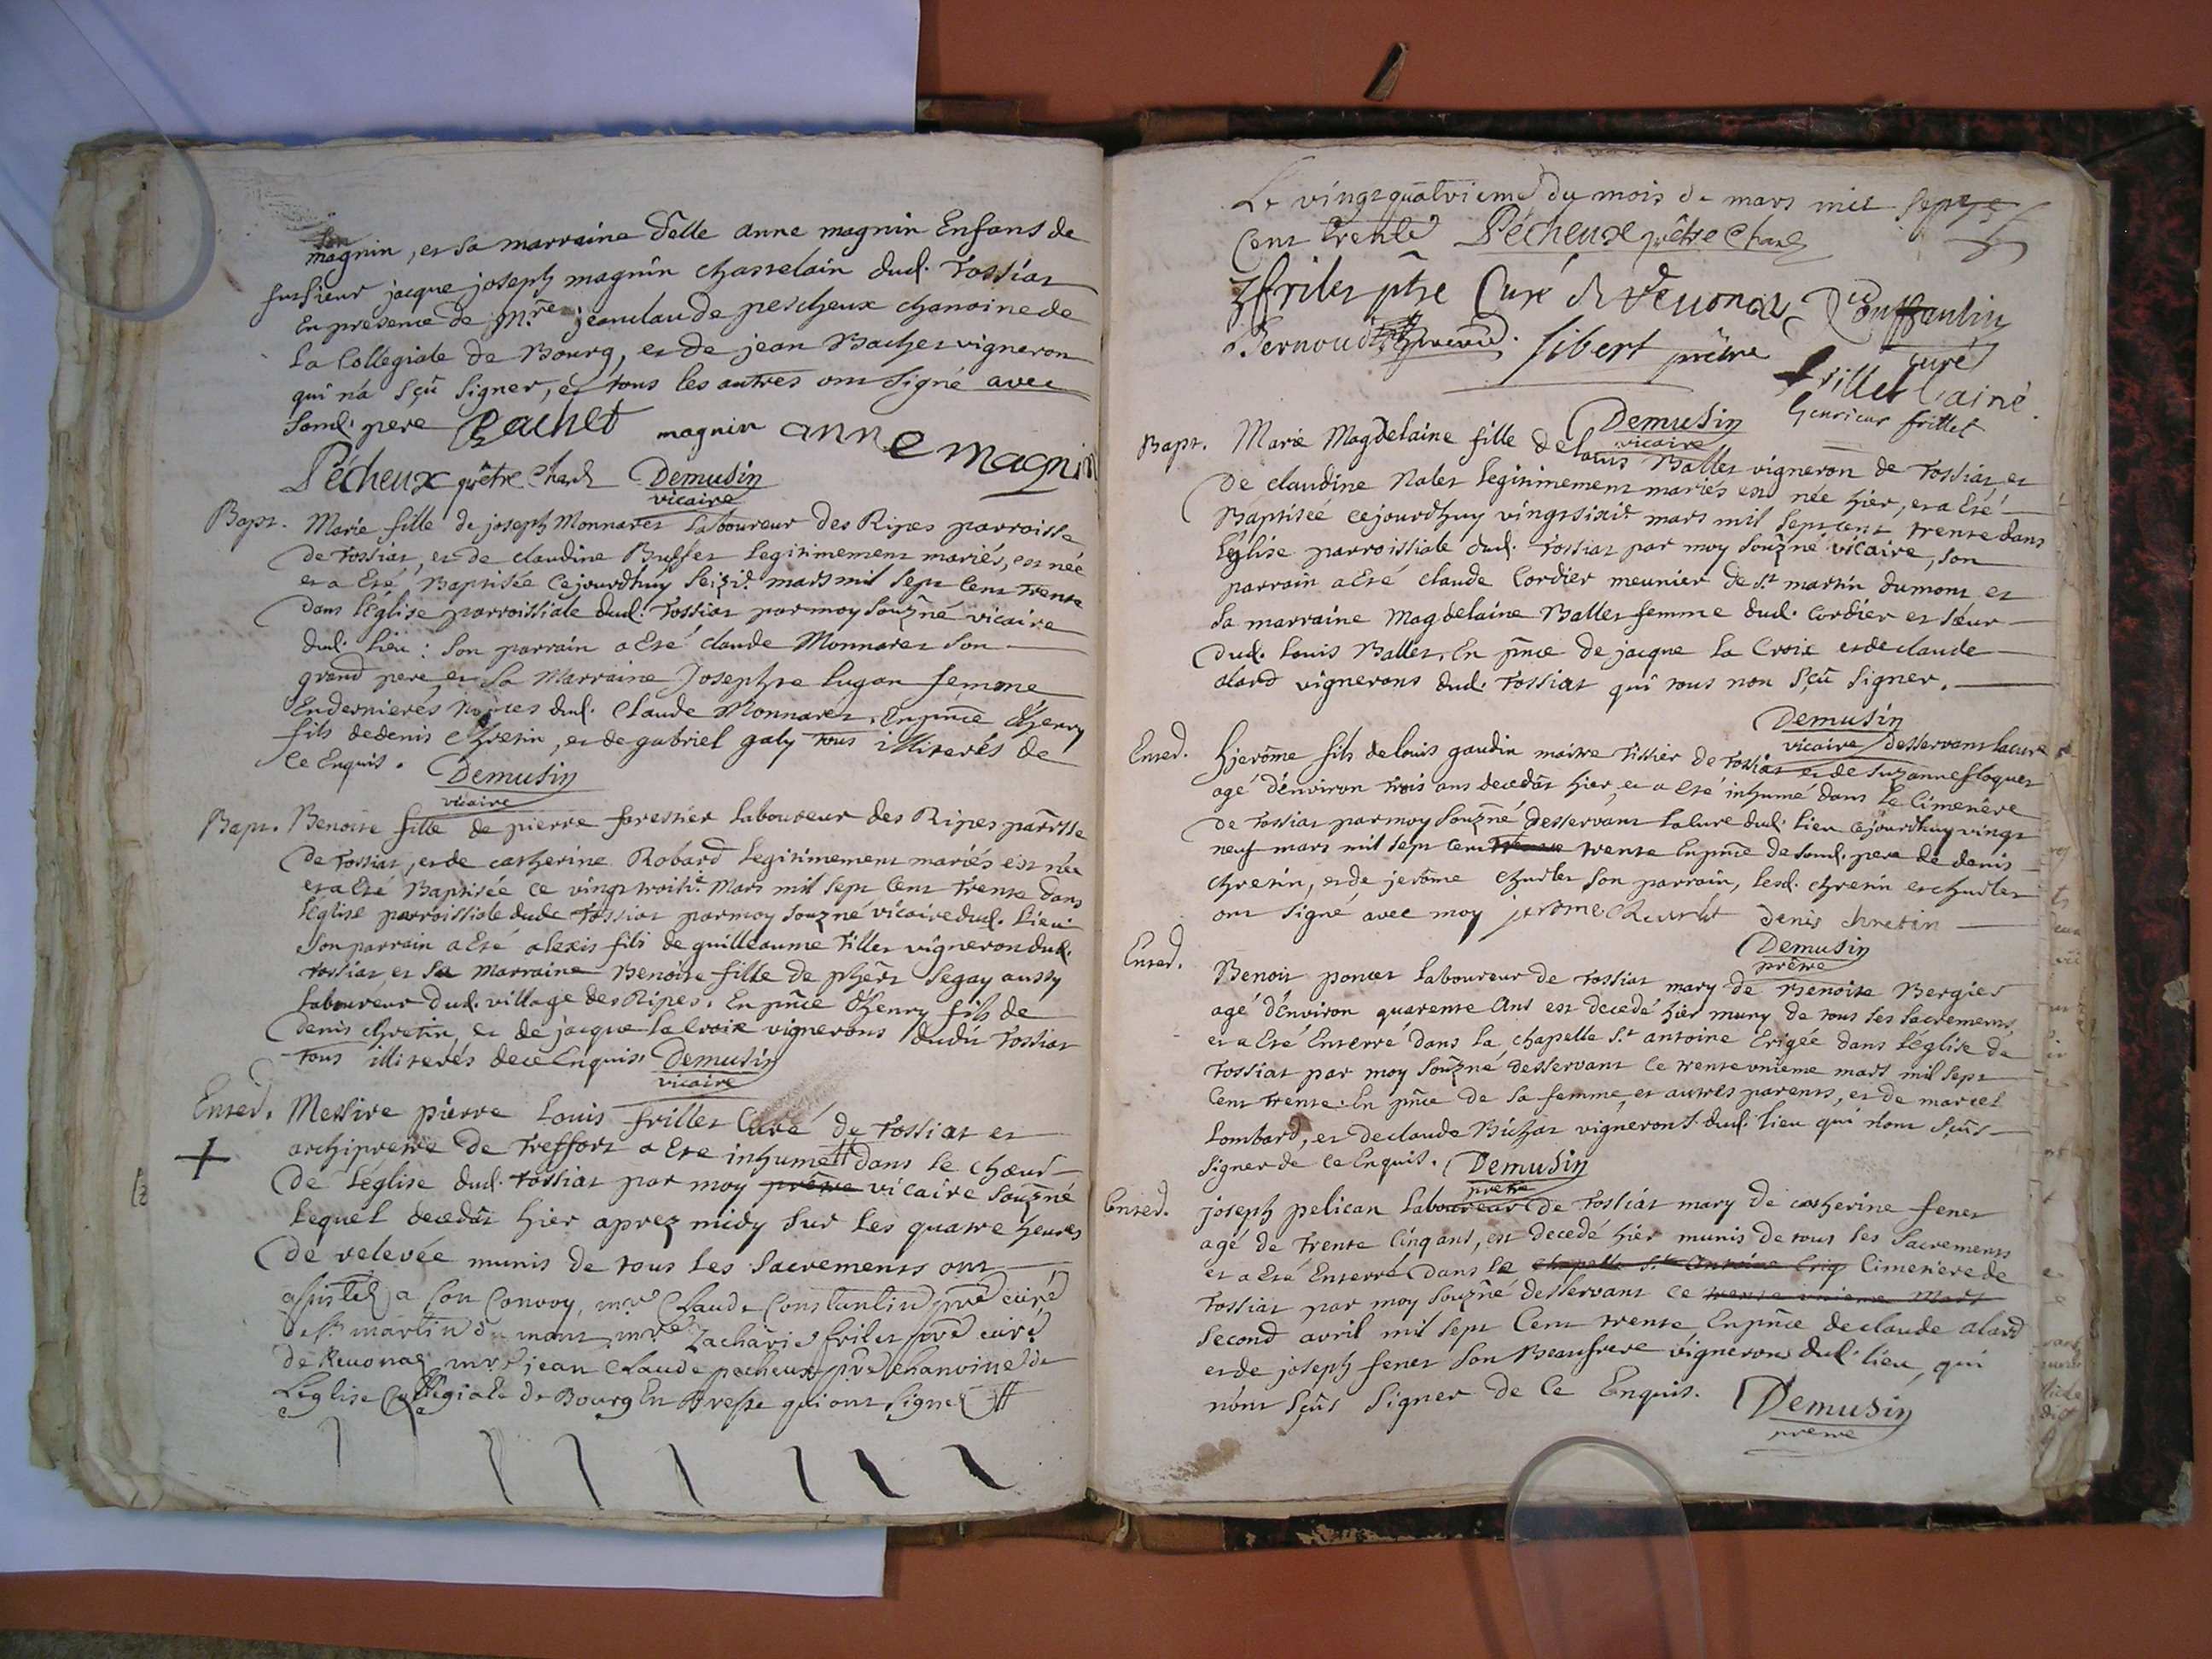 magnin, et sa marraine delle anne magnin Enfans de
sieur jacque joseph magnin chastelain dud. Tossiat
En presence de Mre jeanclaude pescheux chanoine de
la Collegiale de Bourg, et de jean Bachet vigneron
qui n'a sçû signer, et tous les autres ont signé avec
sond. pere Bachet magnin anne magnin
Pécheux prêtre Demusin
vicaire
Bapt. Marie fille de joseph Monnaret laboureur des Ripes parroisse
de Tossiat, et de claudine Buffet legitimement mariés, est née
et a Eté Baptisée Cejourdhuy seizie. mars mil sept Cent Trente
dans l'Eglise parroissiale dud. Tossiat par moy souzné vicaire
dud. lieu : son parrain a Eté claude Monnaret son
grand pere et sa Marraine Josephte lugan femme
En dernieres noces dud. Claude Monnaret. En pnce d'henry
fils de denis Chretin, et de gabriel galy tous illiterés de
ce Enquis. Demusin
vicaire
Bapt. Benoite fille de pierre forestier laboureur des Ripes parisse
de Tossiat, et de catherine Robard legitimement mariés est née
et a Eté Baptisée ce vingt troisie. Mars mil sept Cent Trente dans
l'église parroissiale dude Tossiat par moy souzné vicaire dud. lieu
son parrain a Eté alexis fils de guilleaume Tiller vigneron dud.
Tossiat et sa Marraine Benoite fille de phert Segay aussy
laboureur dud. village des Ripes. En pnce d'henry fils de
denis chretin, et de jacque la Croix vignerons dudit Tossiat
Tous illiterés de ce Enquis. Demusin
vicaire
Enterd. Messire pierre Louis frillet Curé de Tossiat et
archiprêtre de Treffort a Eté inhumé dans le choeur
de l'église dud. Tossiat par moy prêtre vicaire souzné
lequel decedat hier aprez midy sur les quatre heures
de relevée munis de tous les Sacrements ont
assistés a son Convoy, mre Claude Constantin pre curé
de st martin du mont mre Zacharie frilet pre curé
de Reuonas mre jean Claude pecheux pre chanoine de
L'eglise Collegiale de Bourg En Bresse qui ont signé
Le vingt quatrieme du mois de mars mil sept
Cent trente Pécheux prêtre
Zfrilet ptre Curé de Reuonas
curé
Pernoud sibert prêtre
frillet l'ainé
frillet
Demusin
vicaire
Bapt. Marie Magdelaine fille de louis Ballet vigneron de Tossiat, et
de claudine Nalet legitimement mariés est née hier, et a Eté
Baptisée cejourdhuy vingt sixie. mars mil sept cent trente dans
l'église parroissiale dud. Tossiat par moy souzné vicaire, son
parrain a Eté claude Cordier meunier de st martin dumont et
sa marraine Magdelaine Ballet femme dud. Cordier et soeur
dud. louis Ballet. En pnce de jacque la Croix et de claude
alard vignerons dud. Tossiat qui tous non sçû signer.
Demusin
vicaire desservant la cure
Enterd. hjerôme fils de louis gaudin maitre Tissier de Tossiat et de Suzanne floquet
agé d'environ trois ans decedat hier, et a eté inhumé dans le Cimetiere
de Tossiat par moy souzné desservant la Cure dud. lieu cejourdhuy vingt
neuf mars mil sept cent trente En pnce de sond. pere de denis
chretin, et de jerôme son parrain, lesd. chretin et
ont signé avec moy jerome denis chretin
Demusin
prêtre
Enterd. Benoit poncet laboureur de Tossiat mary de Benoite Bergier
agé d'environ quarente ans est decedé hier muny de tous ses sacrements,
et a Eté Enterré dans la chapelle St antoine Erigée dans l'église de
Tossiat par moy souzné desservant ce trente unieme mars mil sept
Cent trente. En pnce de sa femme, et autres parents, et de marcel
Lombard, et de claude Bichat vignerons dud. lieu qui n'ont sçûs
signer de ce Enquis. Demusin
prêtre
Enterd. joseph pelican laboureur de Tossiat mary de catherine fenet
agé de Trente Cinq ans, est decedé hier munis de tous ses Sacrements
et a eté Enterré dans le chapelle St Antoine Erig Cimetiere de
Tossiat par moy souzné desservant ce trente unieme Mars
second avril mil sept Cent trente En pnce de claude alard
et de joseph fenet son Beaufrere vignerons dud. lieu, qui
n'ont sçûs signer de Ce Enquis. Demusin
prêtre